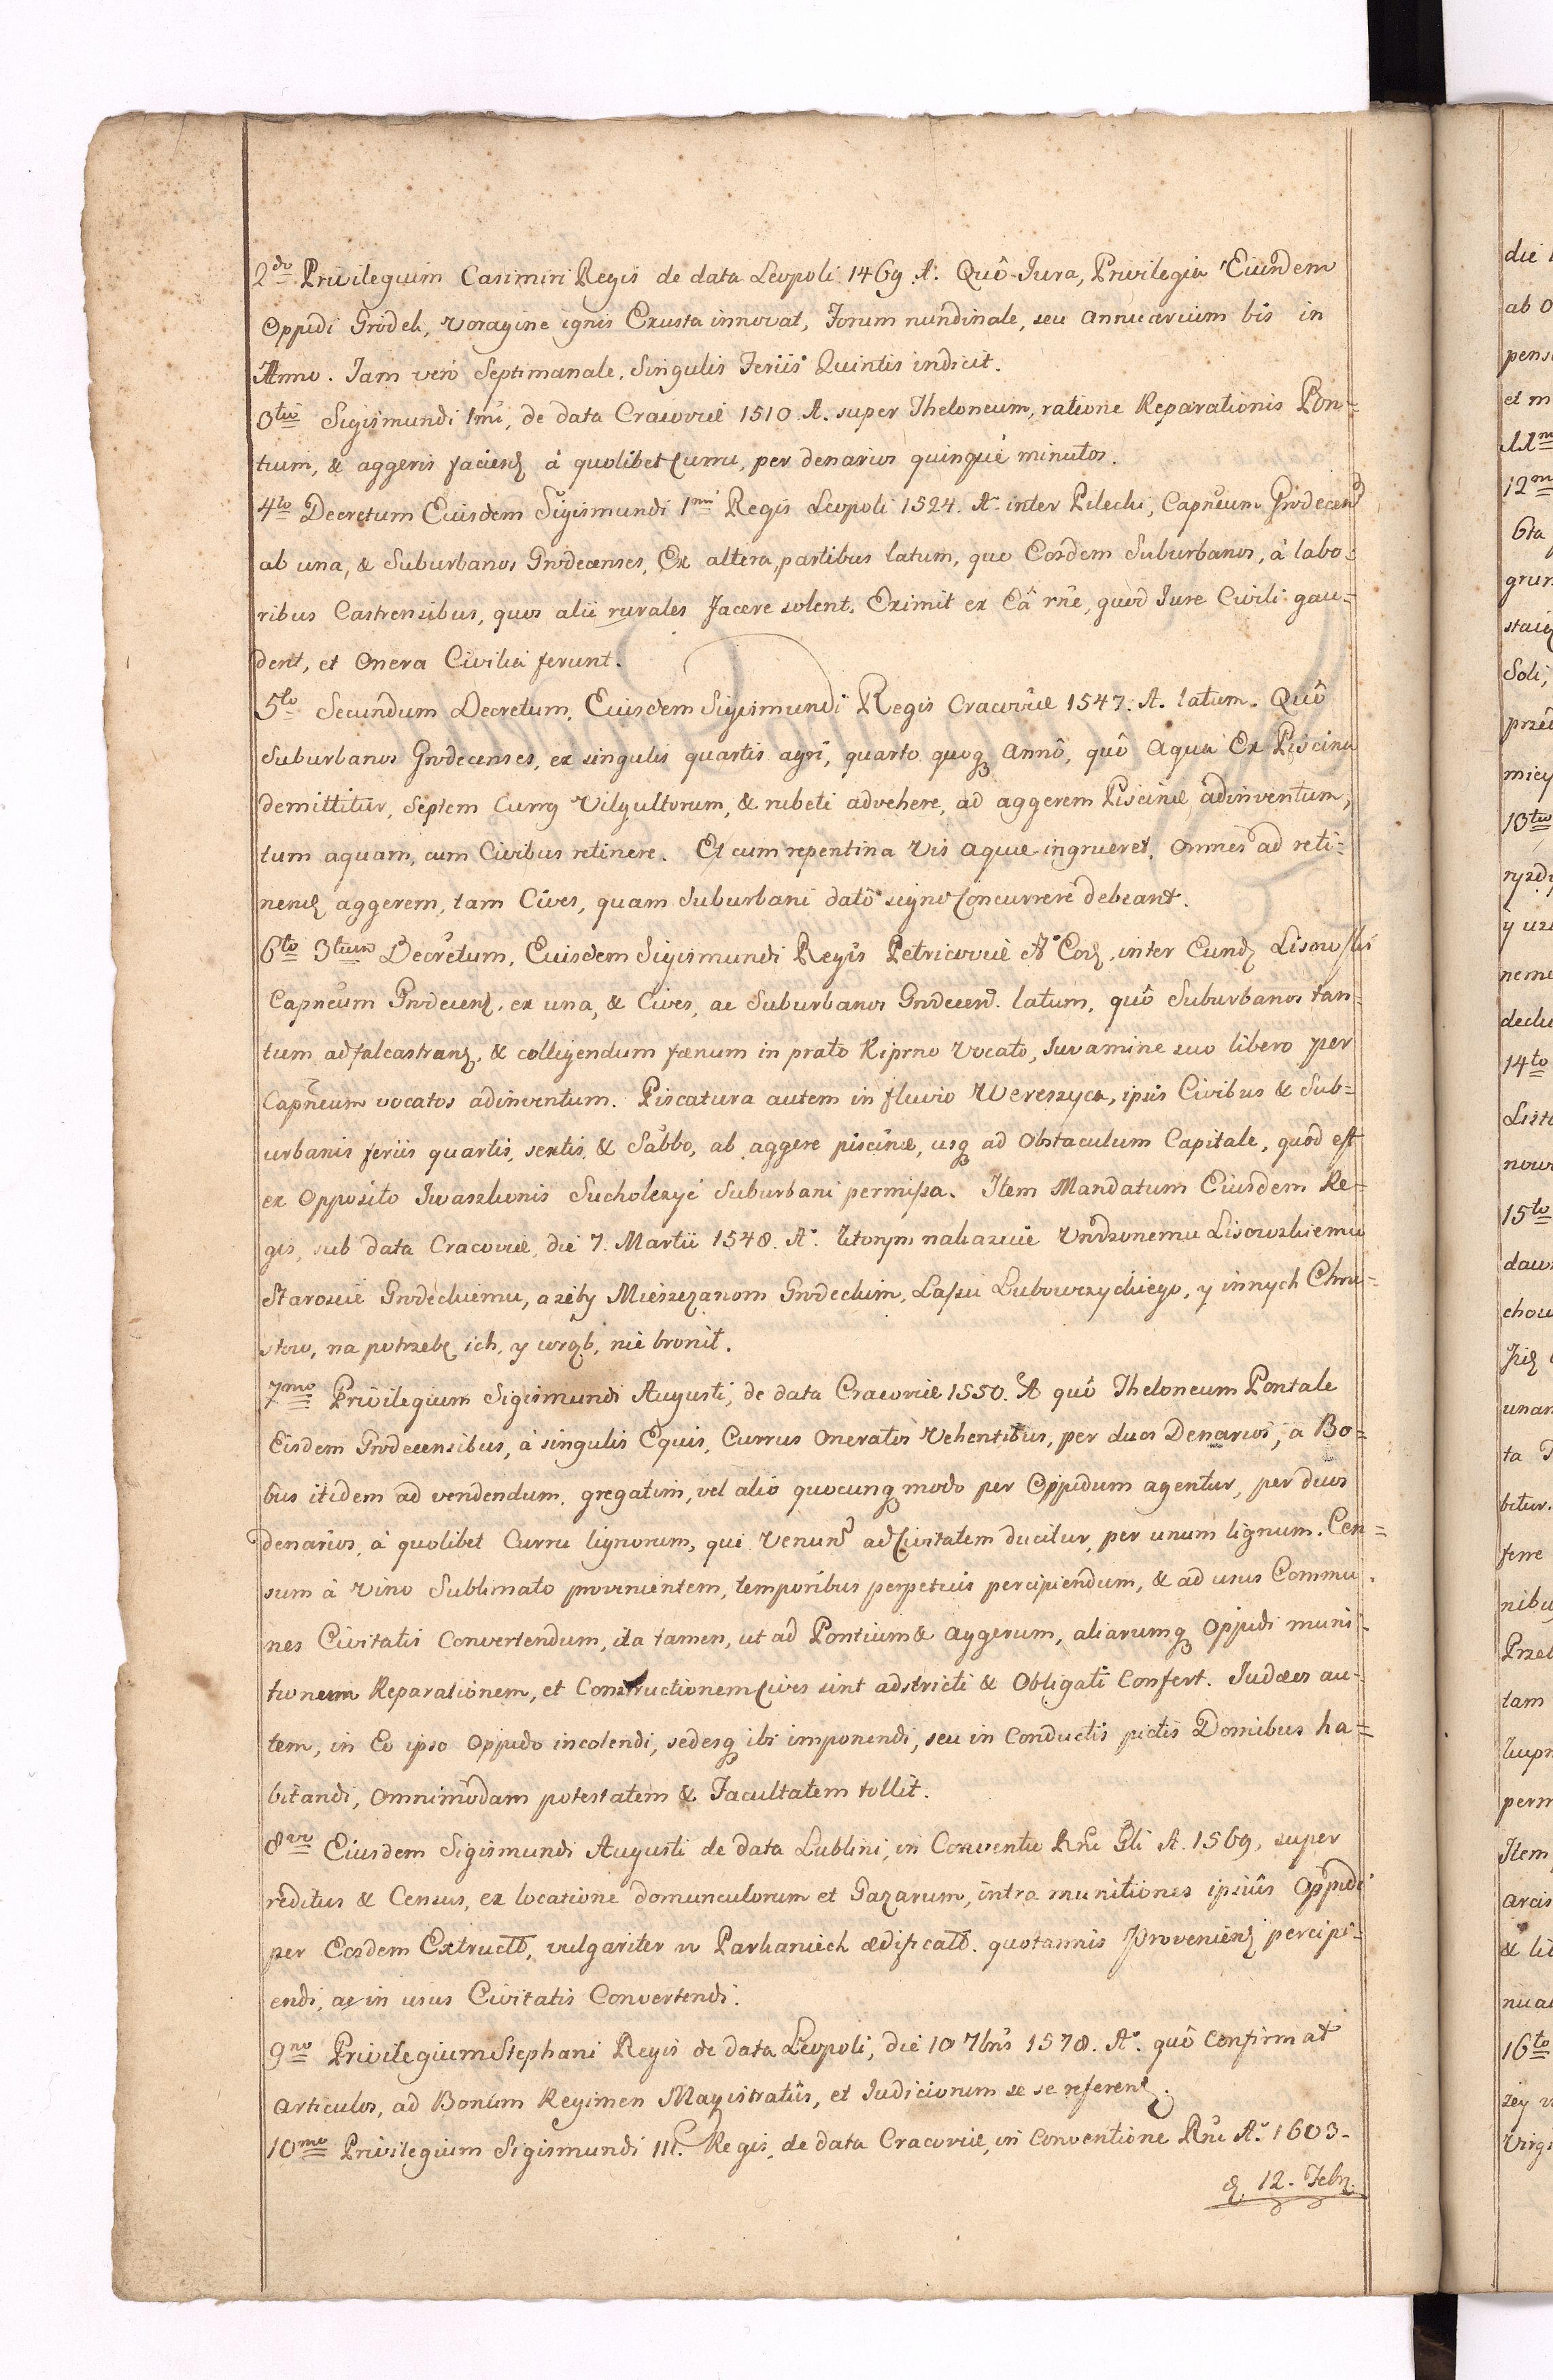 2do Privilegium Casimiri Regis de data Leopoli 1469 A. Quô Jura, Privilegia Eiusdem
Oppidi Grodek, voragine ignis Exusta innovat, Forum nundinale, seu annuarium bis in
Anno. Jam verò Septimanale, Singulis Feriis Quintis indicit.
3tio Sigismundi 1mi, de data Cracoviæ 1510 A. super Theloneum, ratione Reparationis Pon=
tium, & aggeris faciend à quolibet Curru, per denarios quinque minutos.
4to Decretum Eiusdem Sigismundi 1mi Regis Leopoli 1524. A. inter Pilecki, Capneum Grodecens
ab una, & Suburbanos Grodecenses, Ex altera, partibus latum, quo Eosdem Suburbanos, à labo=
ribus Castrensibus, quos alii rurales facere solent, Eximit ex Eâ rñe, quod Jure Civili gau=
dent, et Onera Civilia ferunt.
5to Secundum Decretum, Eiusdem Sigismundi Regis Cracoviæ 1547. A. latum. Quô
Suburbanos Grodecenses, ex singulis quartis agri, quarto quoq Annô, quô Aqua Ex Piscina
demittitur, septem Curry Vilgultorum, & rubeti advehere, ad aggerem Piscinæ adinventum,
tum aquam, cum Civibus retinere. Et cum repentina Vis aquæ ingrueret, Omnes ad reti=
nend aggerem, tam Cives, quam Suburbani datô signo Concurrere debeant.
6to 3tium Decretum, Eiusdem Sigismundi Regis Petricoviæ A. Eod, inter Eund Lisowski
Capneum Grodecens, ex una, & Cives, ac Suburbanos Grodecens. latum, quô Suburbanos tan=
tum ad falcastrand, & colligendum fœnum in prato Kiprno Vocato, Juvamine suo libero per
Capneum vocatos adinventum. Piscatura autem in fluvio Wereszyca, ipsis Civibus & Sub=
urbanis feriis quartis, sextis, & Sabbo, ab aggere piscinæ, usq ad Obstaculum Capitale, quod est
ex Opposito Iwaszkonis Sucholezyc Suburbani permissa. Item Mandatum Eiusdem Re=
gis, sub data Cracoviæ, die 7. Martii 1548. A. ktorym nakazuie Urodzonemu Lisowskiemu
Staroscie Grodeckiemu, azeby Mieszczanom Grodeckim, Lassu Lubowczyckiego, y innych Chru=
stow, na potrzebę ich, y wrąb, nie bronił.
7mo Privilegium Sigismundi Augusti, de data Cracoviæ 1550. A quô Theloneum Pontale
Eisdem Grodecensibus, à singulis Equis, Currus Oneratos Vehentibus, per duos Denarios, a Bo=
bus itidem ad vendendum, gregatim, vel aliô quocunq modo per Oppidum agentur, per duos
denarios, à quolibet Curru lignorum, qui Venund ad Civitatem ducitur, per unum lignum. Cen=
sum à Vino Sublimato provenientem, temporibus perpetuis percipiendum, & ad usus Commu=
nes Civitatis Convertendum, ita tamen, ut ad Pontium & Aggerum, aliarumq Oppidi muni=
tionem Reparationem, et Constructionem Cives sint adstricti & Obligati Confert. Judæos au=
tem, in Eo ipso Oppido incolendi, sedesq ibi imponendi, seu in Conductis pictis Domibus ha=
bitandi, Omnimodam potestatem & Facultatem tollit.
8vo Eiusdem Sigismundi Augusti de data Lublini, in Conventu Rñi Gli A. 1569, super
reditus & Census, ex locatione domunculorum et Gazarum, intra munitiones ipsius Oppidi
per Eosdem Extructt, vulgariter w Parkaniech ædificatt. quotannis Provenient percipi=
endi, ac in usus Civitatis Convertendi.
9no Privilegium Stephani Regis de data Leopoli, die 10 7bris 1578. A. quô Confirmat
Articulos, ad Bonum Regimen Magistratûs, et Judiciorum se se referend.
10mo Privilegium Sigismundi III. Regis, de data Cracoviæ, in Conventione Rñi A. 1603.
d. 12. Febr.